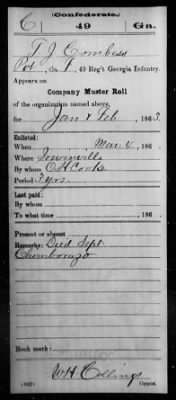 (Confederate.)
C 49 Ga.
T J Combess
Pvt, Co. F, 49 Reg't Georgia Infantry.
Appears on
Company Muster Roll
of the organization named above,
for Jan & Feb, 1863.
Enlisted:
When Mar 4, 186 .
Where Irwinville
By whom C H Cooke
Period 3 yrs
Last paid:
By whom
To what time , 186 .
Present or absent
Remarks: Died Sept.
Chimborazo
Book mark:
W H
(642) Copyist.